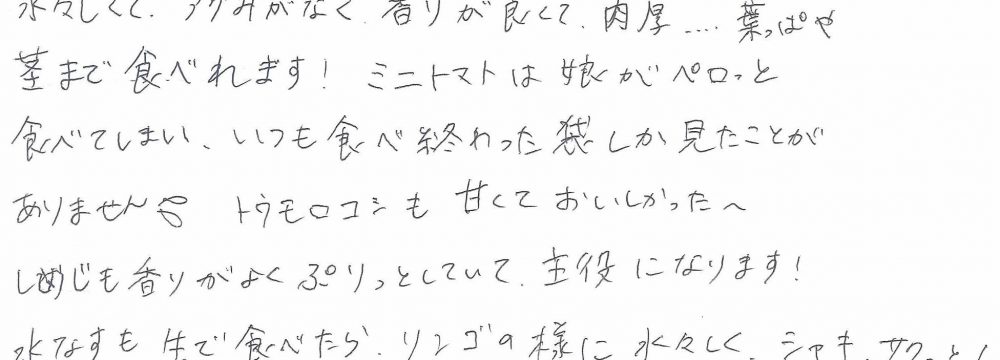 水々しくて、アクみがなく、香りが良くて、肉厚....葉っぱや
茎まで食べれます!ミニトマトは娘がペロっと
食べてしまい、いつも食べ終わった袋しか見たことが
ありません トウモロコシも甘くておいしかった〜
しめじも香りがよくぷりっとしていて、主役になります!
水なすも生で食べたら、リンゴの様に水々しく、シャキ、サクっと!